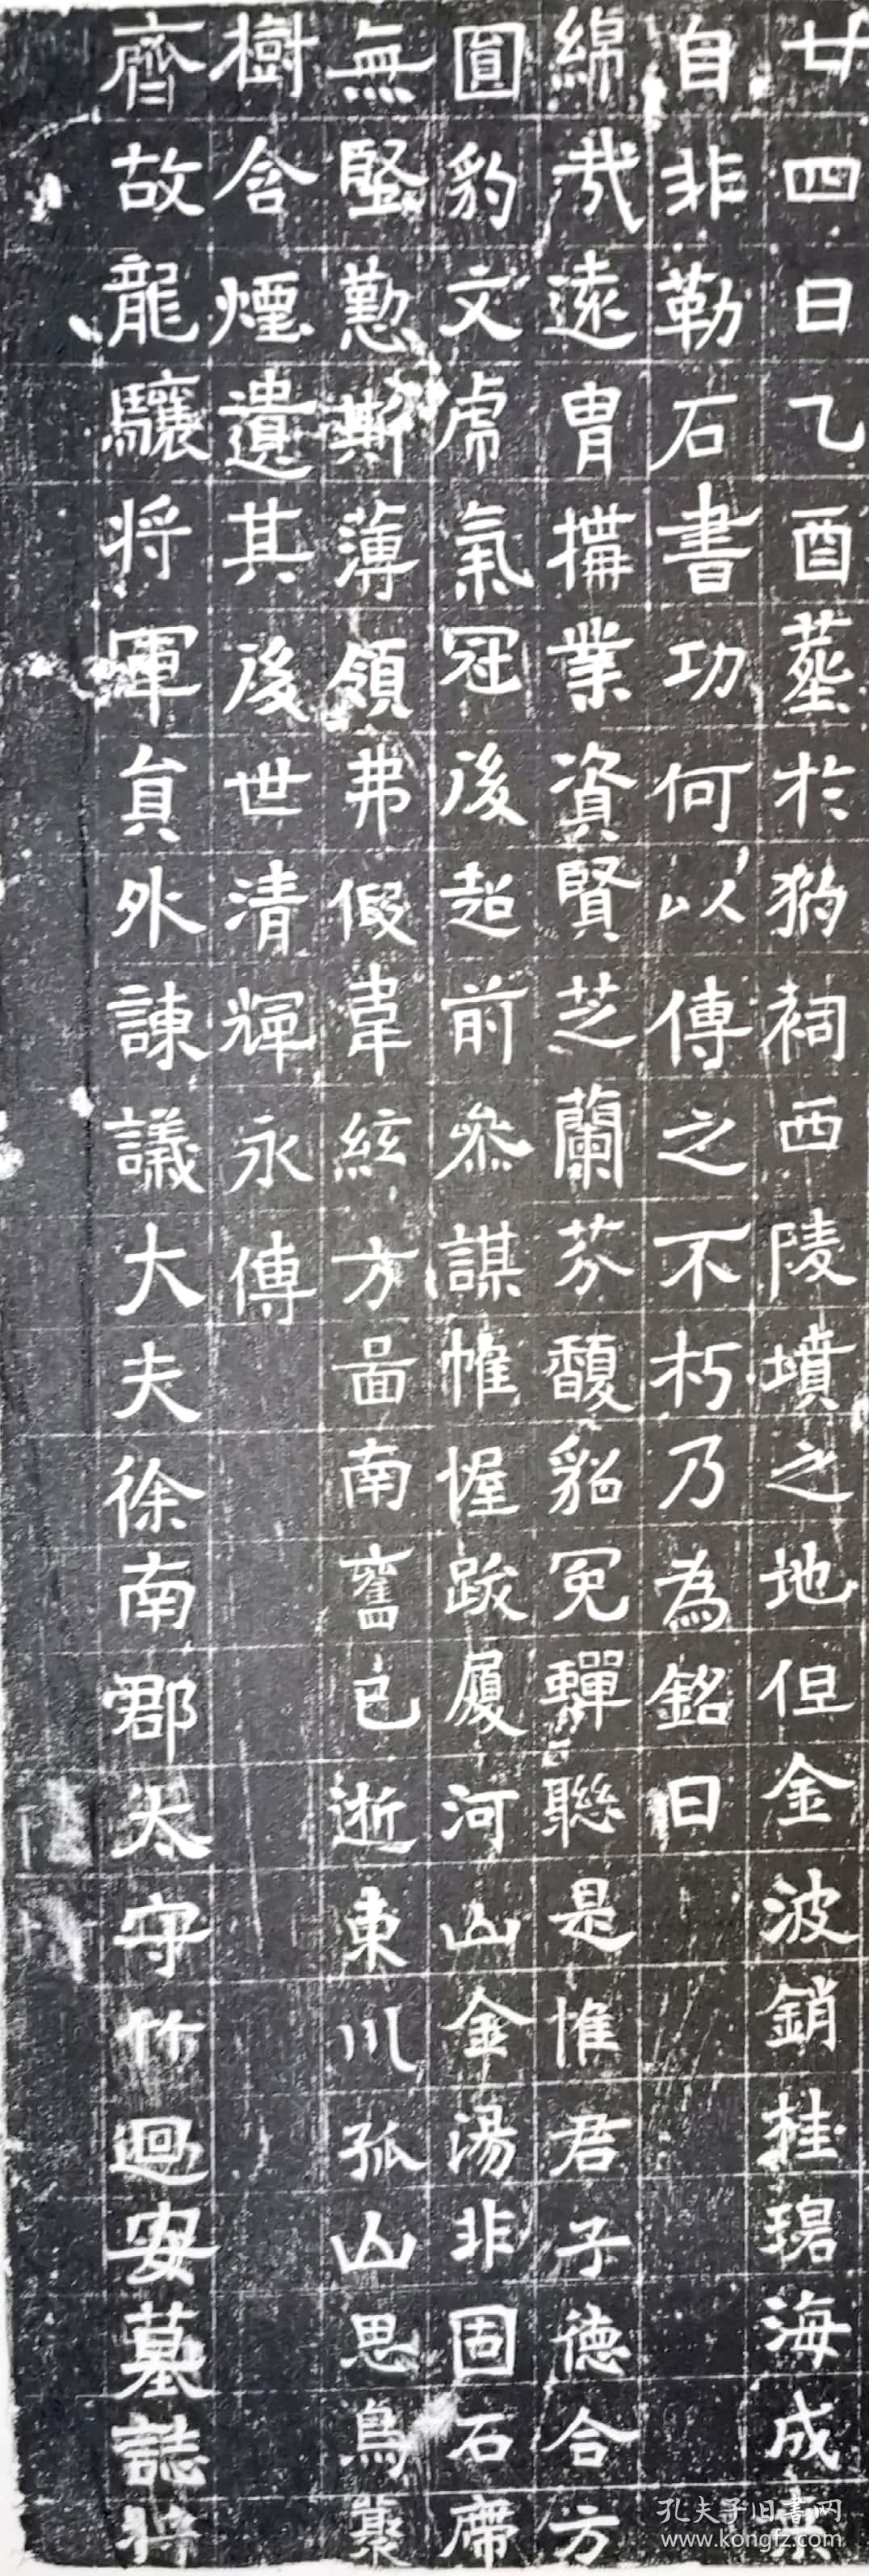 廿四日乙酉塟於豹祠西陵墳之地但金波銷桂琘海成桒
自非勒石書功何以傳之不朽乃為銘曰
綿哉遠胄搆業資賢芝蘭芬馥貂冕蟬聯是惟君子德合方
圓豹文虎氣冠後超前叅謀帷幄跋履河山金湯非固石席
無堅懃斯薄領弗假韋絃方啚南奮已逝東川孤山思鳥藂
樹含煙遺其後世清輝永傳
齊故龍驤将軍員外諫議大夫徐南郡太守竹迴安墓誌将
孔夫子旧书网
www.kongfz.com